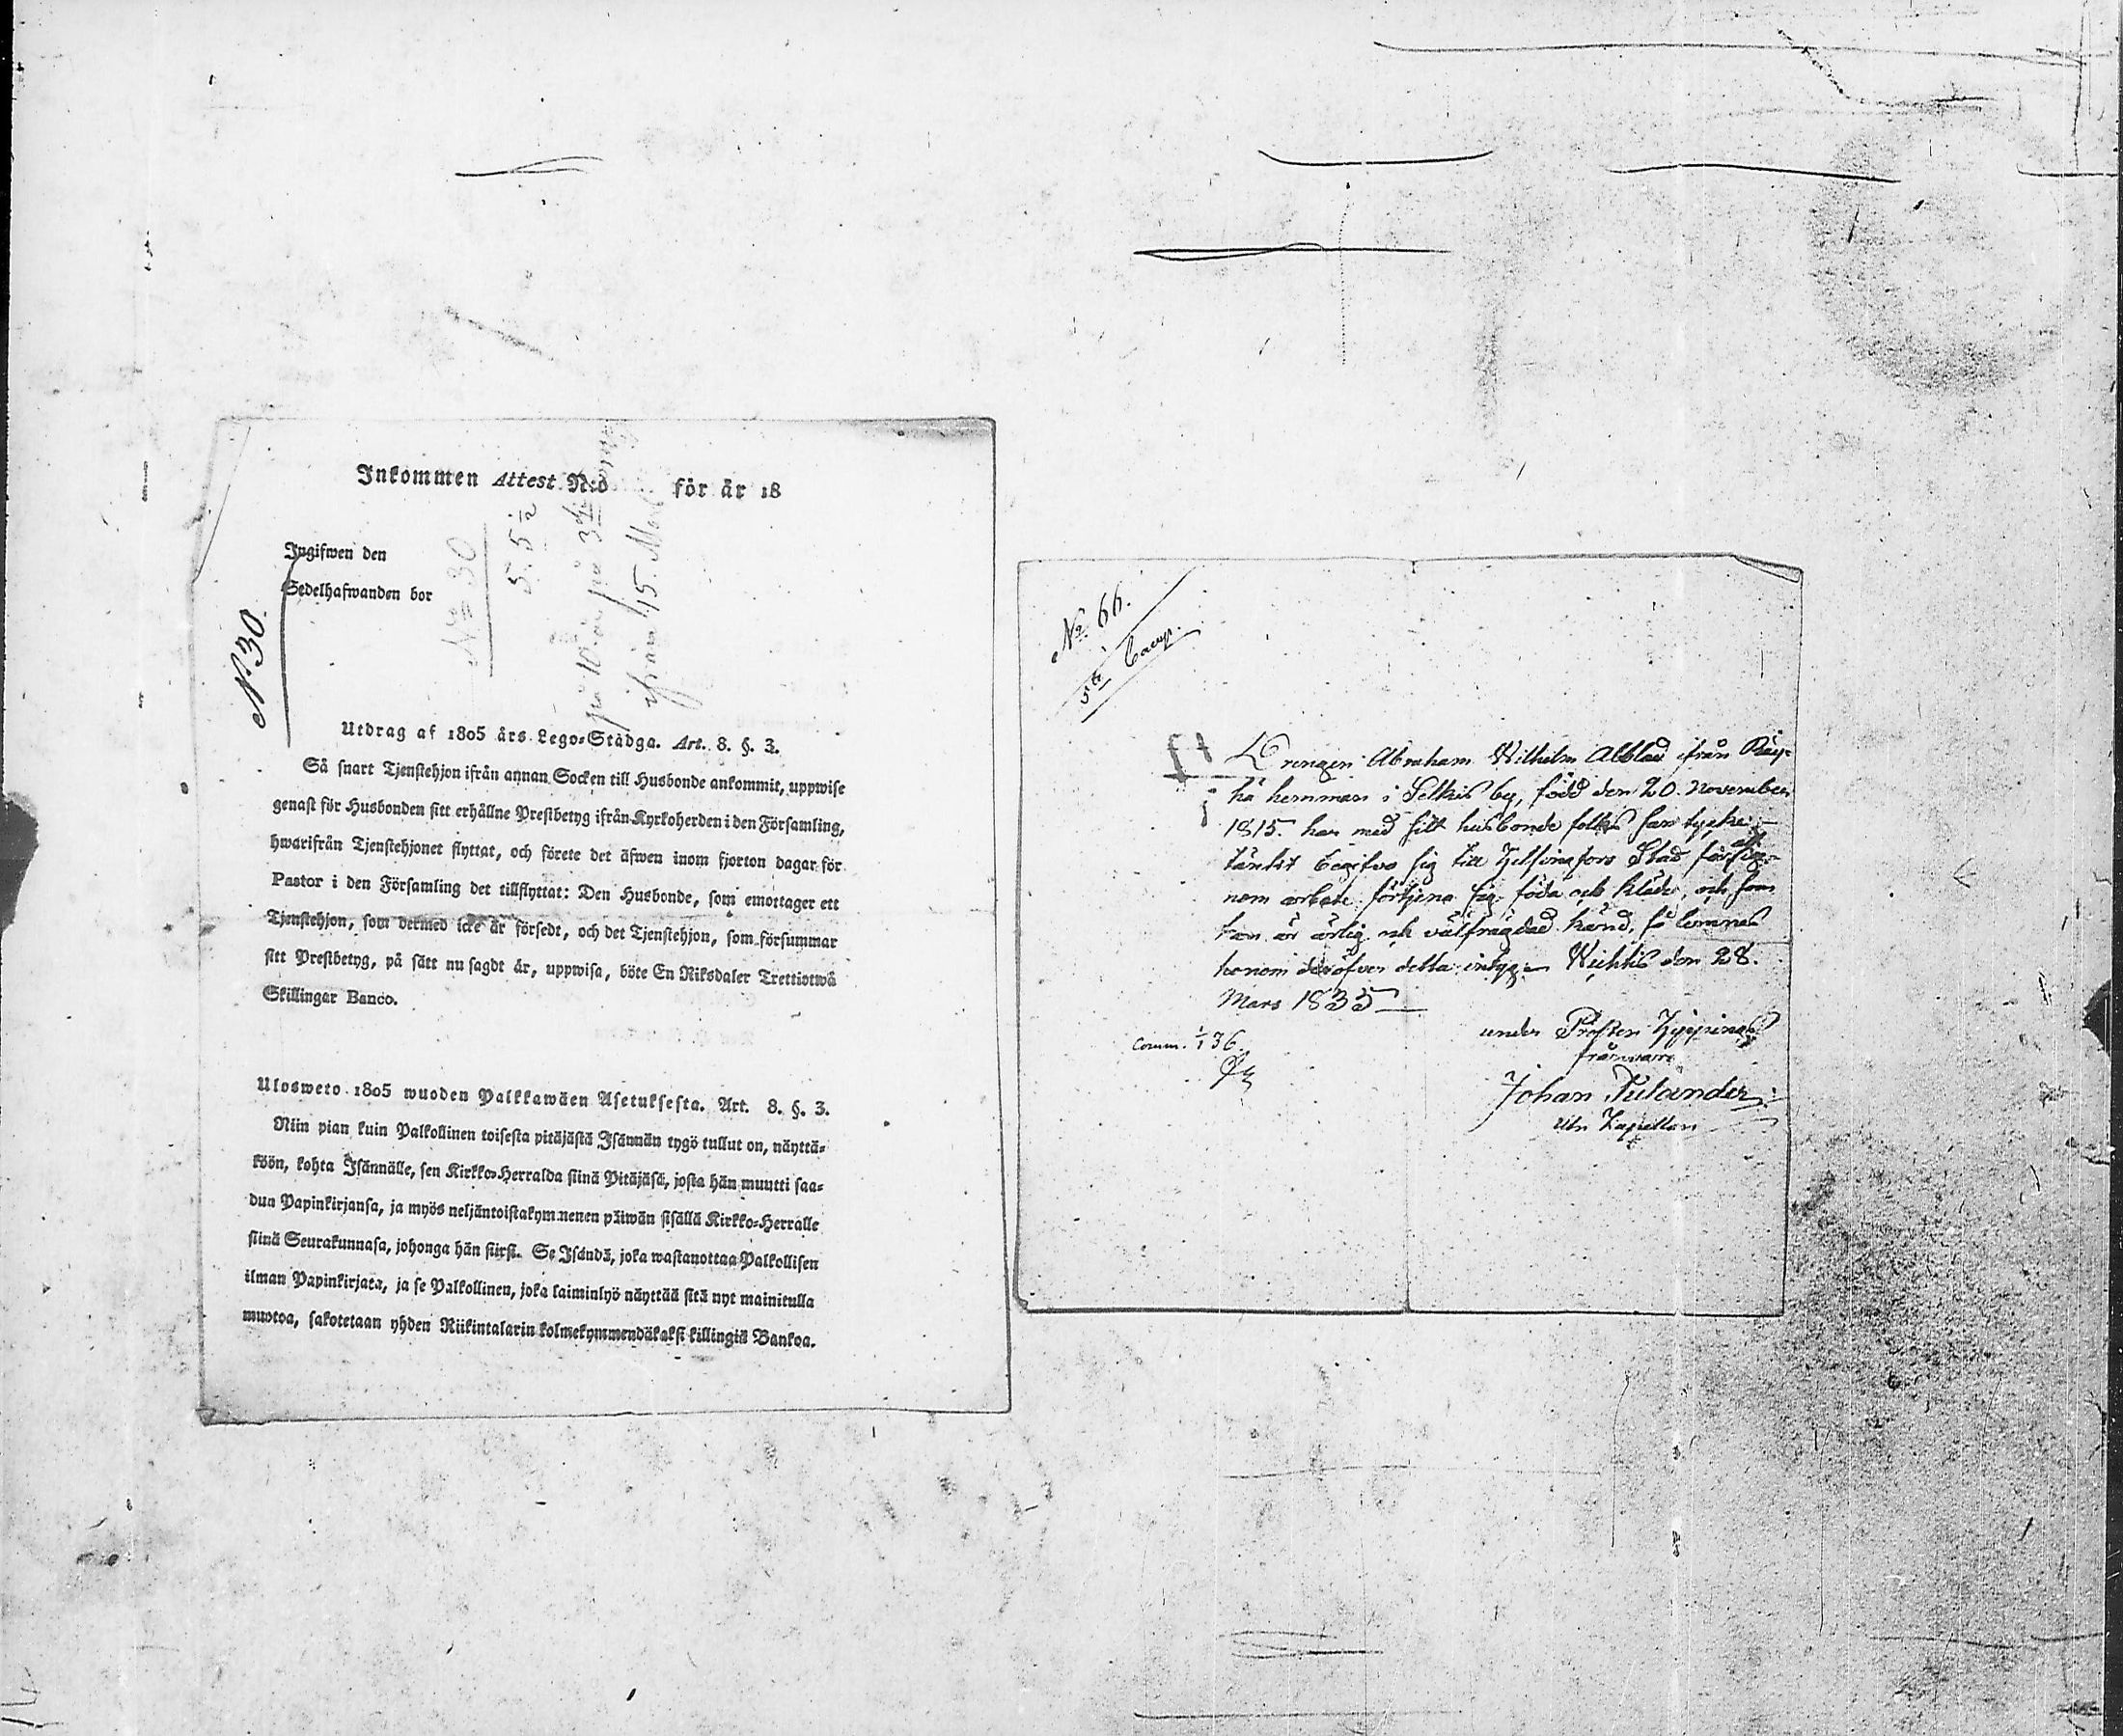 Inkommen Attest N:o för år 18
Ingifwen den
Sedelhafwanden bor
N 30.
No 30
5. 5 1/2
på 10. år på 3
ifrån 15.
Utdrag af 1805 års Lego-Stådga. Art. 8. §. 3.
Så snart Tjenstehjon ifrån annan Socken till Husbonde ankommit, uppwise
genast för Husbonden sitt erhållne Prestbetyg ifrån Kyrkoherden i den Församling,
hwarifrån Tjenstehjonet flyttat, och förete det äfwen inom fjorton dagar för
Pastor i den Församling det tillflyttat: Den Husbonde, som emottager ett
Tjenstehjon, som dermed icke är försedt, och det Tjenstehjon, som försummar
sitt Prestbetyg, på sätt nu sagdt är, uppwisa, böte En Riksdaler Trettiotwå
Skillingar Banco.
Ulosweto 1805 wuoden Palkkawäen Asetuksesta. Art. 8. §. 3.
Niin pian kuin Palkollinen toisesta pitäjästä Isännän tygö tullut on, näyttä-
köön, kohta Isännälle, sen Kirkko-Herralda siinä Pitäjäsä, josta hän muutti saa-
dun Papinkirjansa, ja myös neljäntoistakymmenen päiwän sisällä Kirkko-Herralle
siinä Seurakunnasa, johonga hän siirsi. Se Isändä, joka wastanottaa Palkollisen
ilman Papinkirjata, ja se Palkollinen, joka laiminlyö näyttää sitä nyt mainitulla
muotoa, sakotetaan yhden Riikintalarin kolmekymmendäkaksi killingiä Bankoa.
No 66.
5te Camp.
Drengen Abraham Wilhelm Alblad ifrån Räy-
hä hemman i Selkis by, född den 20. November
1815. har med sitt husbonde folks samtycke
tänkt begifva sig till Helsingfors Stad för att ge-
nom arbete förtjena sig föda och kläder, och som
han är ärlig och välfrägdad känd, så lemnas
honom deröfver detta intyg. Wichtis den 28.
Mars 1835
Comm. 1/1 36.
under Prosten Hippings
frånvaro
Johan Tulander
Utn Kapellan